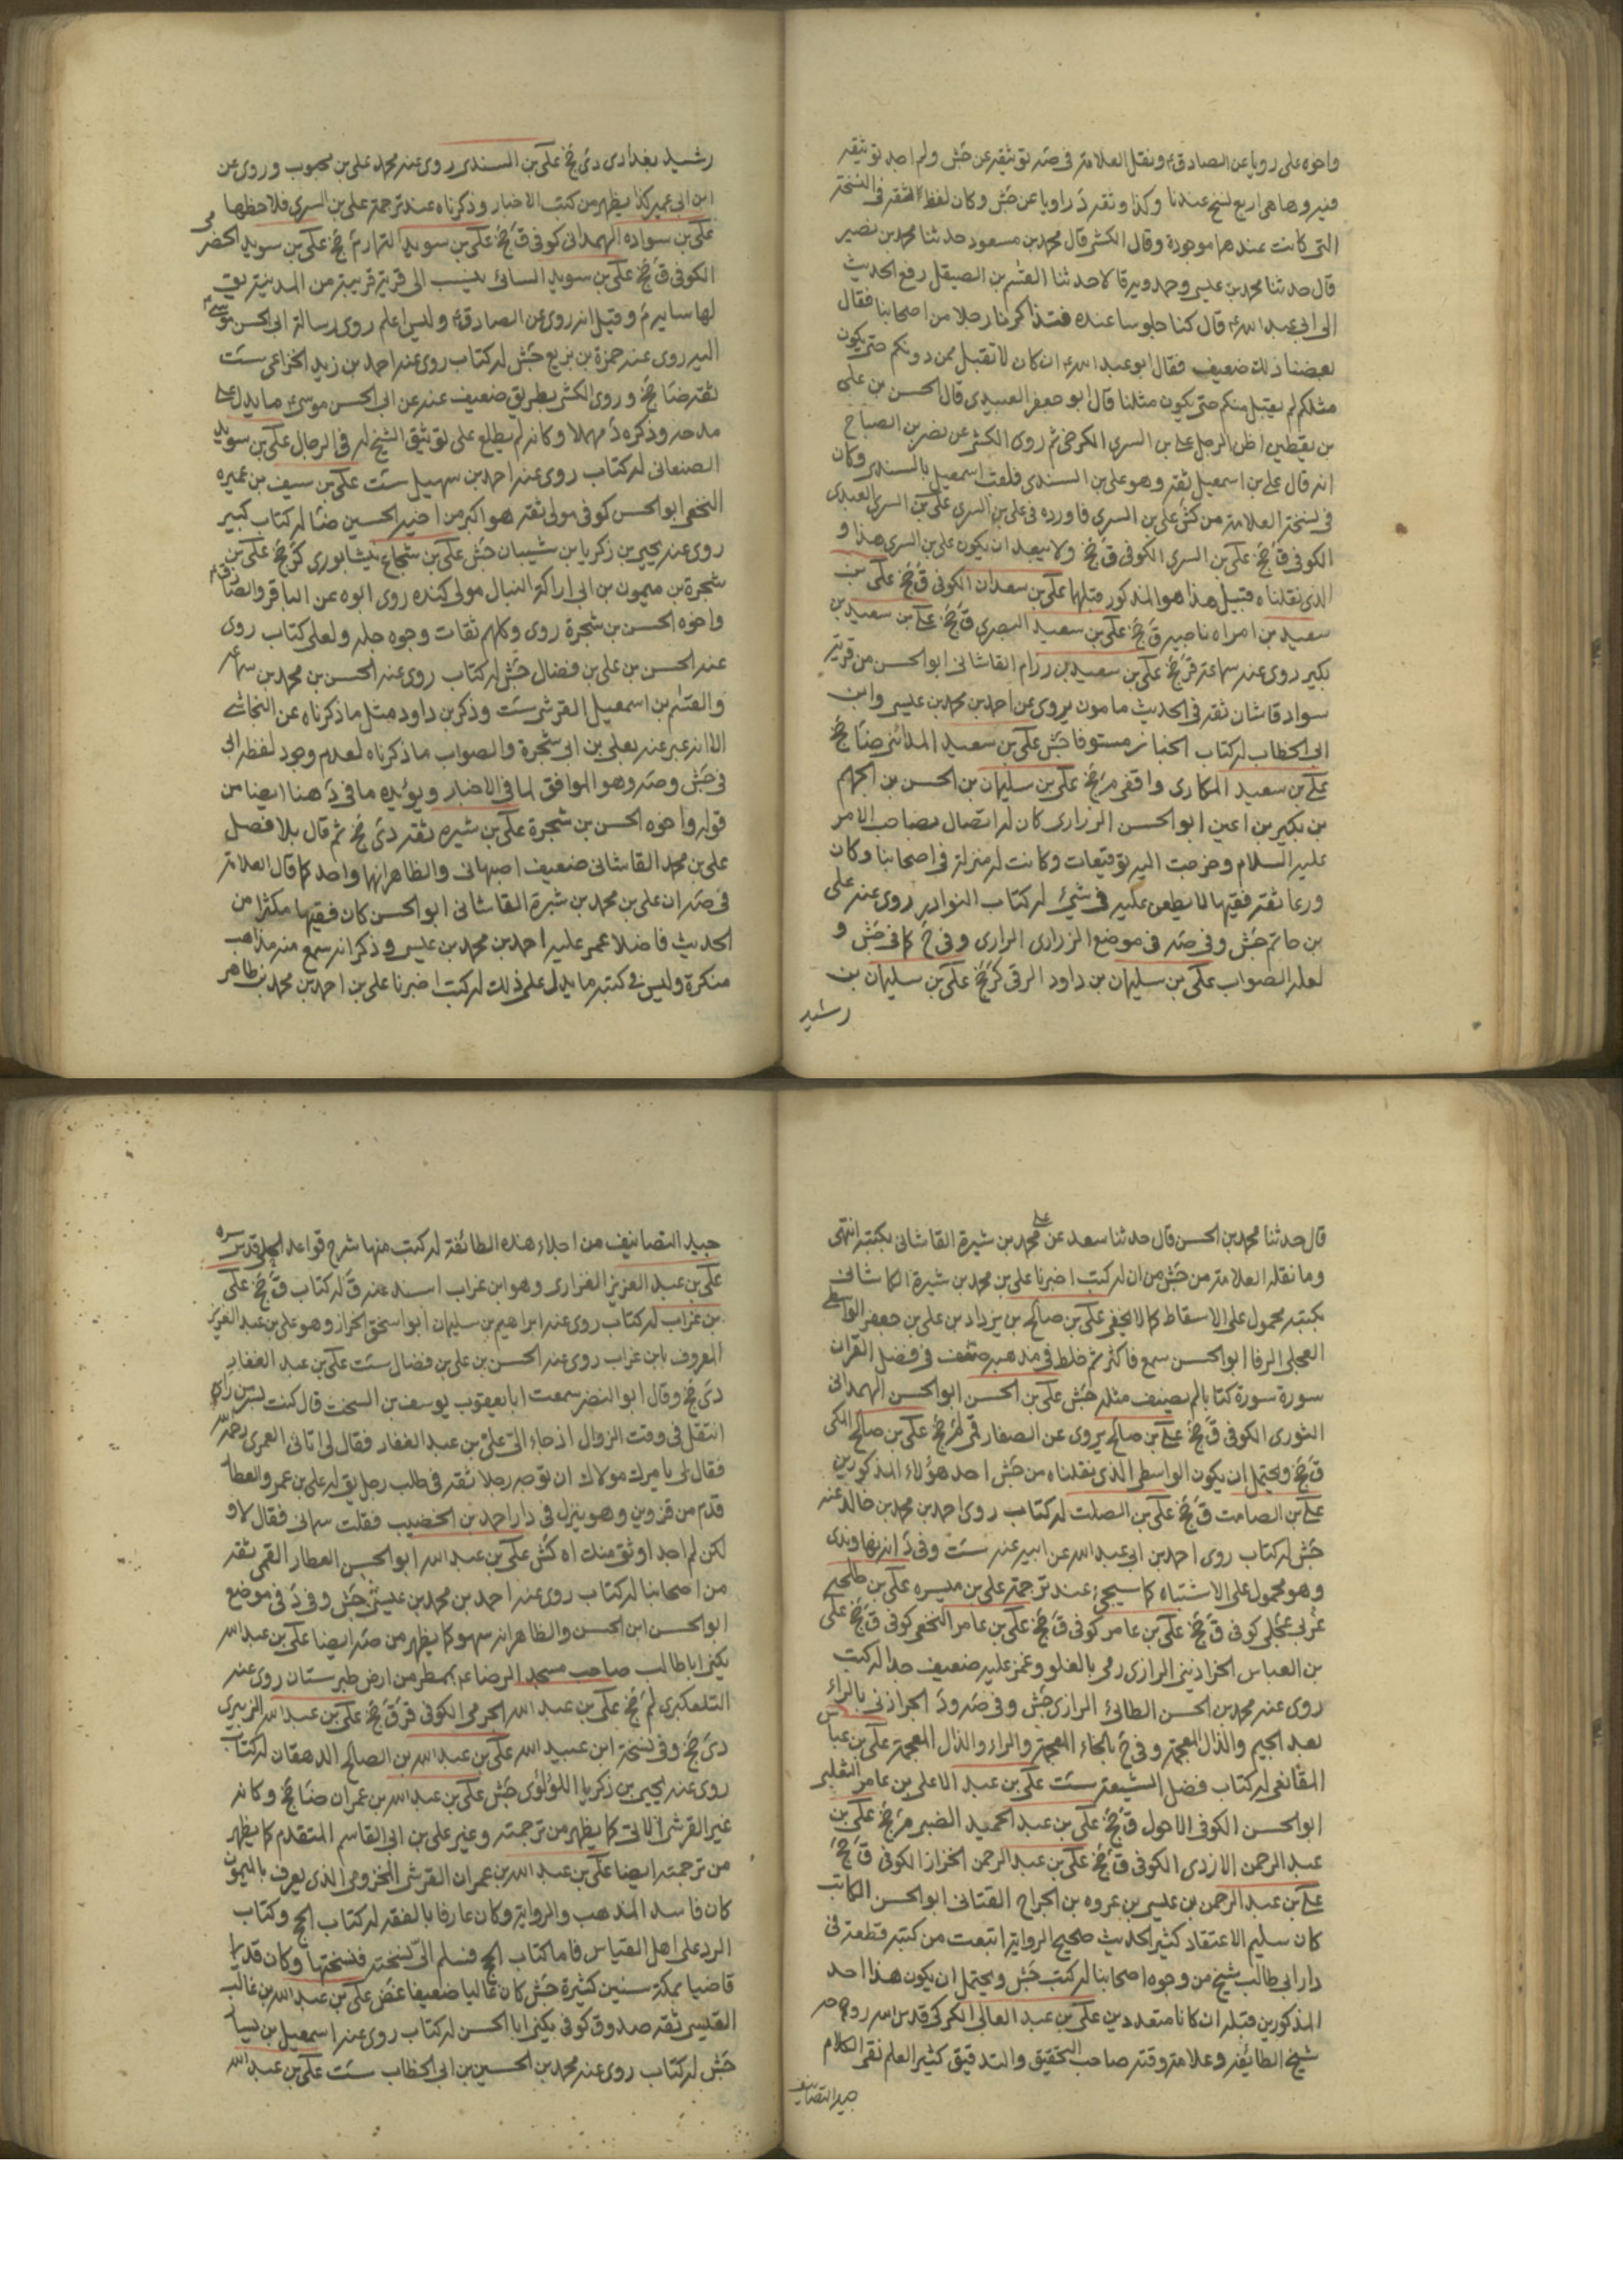 واخوه على رويا عن الصادق ع ونقل العلامة في صه توثيقه عن جش ولم اجد توثيقه
فيه وها هى اربع نسخ عندنا وكذا وثقه د راويا عن جش وكان لفظة الثقه في النسخة
التى كانت عندهما موجودة وقال الكشى قال محمد بن مسعود حدثنا محمد بن نصير
قال حدثنا محمد بن عيسى وحمدويه قالا حدثنا القسم بن الصيقل رفع الحديث
الى ابى عبد الله ع قال كنا جلوسا عنده فتذاكرنا رجلا من اصحابنا فقال
بعضنا ذلك ضعيف فقال ابو عبد الله ع ان كان لا تقبل ممن دونكم حتى يكون
مثلكم لم يقبل منكم حتى يكون مثلنا قال ابو جعفر العبيدى قال الحسن بن على
بن يقطين اظن الرجل على بن السرى الكرخى ثم روى الكشى عن نصر بن الصباح
انه قال على بن اسمعيل ثقه وهو على بن السندى فلقب اسمعيل بالسندى وكان
في نسخة العلامة من كش على بن السرى فاورده في على بن السرى على بن السرى العبدى
الكوفى ق جخ على بن السرى الكوفى ق جخ ولا يبعد ان يكون على بن السرى هذا و
الذى نقلناه قبيل هذا هو المذكور قبلهما على بن سعدان الكوفى ق جخ على بن
سعيد بن امراه ناصيه ق جخ على بن سعيد البصرى ق جخ على بن سعيد بن
بكير روى عنه سماعة ق جخ على بن سعيد بن رزام القاشانى ابو الحسن من قرية
سواد قاشان ثقه في الحديث مامون يروى عن احمد بن محمد بن عيسى وابن
ابى الخطاب له كتاب الجنائز مستوفا جش على بن سعيد المدائنى ضا جخ
على بن سعيد المكارى واقفى م جخ على بن سليمان بن الحسن بن الجهم
بن بكير بن اعين ابو الحسن الزرارى كان له اتصال بصاحب الامر
عليه السلام وخرجت اليه توقيعات وكانت له منزلة في اصحابنا وكان
ورعا ثقه فقيها لا يطعن عليه في شيئ له كتاب النوادر روى عنه على
بن حاتم جش وفي صه في موضع الزرارى الرازى وفي ح كما في جش و
لعله الصواب على بن سليمان بن داود الرقى كر جخ على بن سليمان بن
رشيد
رشيد بغدادى دى جخ على بن السندى روى عنه محمد على بن محبوب وروى عن
ابن ابى عمير كذا يظهر من كتب الاخبار وذكرناه عند ترجمة على بن السرى فلاحظها
على بن سواده الهمدانى كوفى ق جخ على بن سويد التمار م جخ على بن سويد الحضرمى
الكوفى ق جخ على بن سويد السائى ينسب الى قرية قريبة من المدينة يق
لها سايه م وقيل انه روى عن الصادق ع وليس اعلم روى رسالة ابى الحسن موسى ع
اليه روى عنه حمزة بن بزيع جش له كتاب روى عنه احمد بن زيد الخزاعى ست
ثقه ضا جخ وروى الكشى بطريق ضعيف عنه عن ابى الحسن موسى ع ما يدل على
مدحه وذكره د مهملا وكانه لم يطلع على توثيق الشيخ له في الرجال على بن سويد
الصنعانى له كتاب روى عنه احمد بن سهيل ست على بن سيف بن عميره
النخعى ابو الحسن كوفى مولى ثقه هو اكبر من اخيه الحسين ضا له كتاب كبير
روى عنه يحيى بن زكريا بن شيبان جش على بن شجاع نيشابورى كر جخ على بن
شجرة بن ميمون بن ابى اراكة النبال مولى كنده روى ابوه عن الباقر والصادق ع
واخوه الحسن بن شجرة روى وكلهم ثقات وجوه جله ولعلى كتاب روى
عنه الحسن بن على بن فضال جش له كتاب روى عنه الحسن بن محمد بن سماعه
والقسم بن اسمعيل القرشى ست وذكر بن داود مثل ما ذكرناه عن النجاشى
الا انه عبر عنه بعلى بن ابى شجرة والصواب ما ذكرناه لعدم وجود لفظ ابى
في جش وصه وهو الموافق لما في الاخبار ويؤيده ما في د هنا ايضا من
قوله واخوه الحسن بن شجرة على بن شيره ثقه دى جخ ثم قال بلا فصل
على بن محمد القاشانى ضعيف اصبهانى والظاهر انهما واحد كما قال العلامة
في صه ان على بن محمد بن شيرة القاشانى ابو الحسن كان فقيها مكثرا من
الحديث فاضلا غمز عليه احمد بن محمد بن عيسى وذكر انه سمع منه مذاهب
منكرة وليس في كتبه ما يدل على ذلك له كتب اخبرنا على بن احمد بن محمد بن طاهر
قال حدثنا محمد بن الحسن قال حدثنا سعد عن على محمد بن شيرة القاشانى بكتبه انتهى
وما نقله العلامة من جش من ان له كتب اخبرنا على بن محمد بن شيرة الكاشانى
بكتبه محمول على الاسقاط كما لا يخفى على بن صالح بن يزداد بن على بن جعفر الواسطى
العجلى الرفا ابو الحسن سمع فاكثر ثم خلط في مذهبه صنف في فضل القران
سورة سورة كتابا لم يصنف مثله جش على بن الحسن ابو الحسن الهمدانى
الثورى الكوفى ق جخ على بن صالح يروى عن الصفار قمى لم جخ على بن صالح المكى
ق جخ ويحتمل ان يكون الواسطى الذى نقلناه من جش احد هؤلاء المذكورين
على بن الصامت ق جخ على بن الصلت له كتاب روى احمد بن محمد بن خالد عنه
جش له كتاب روى احمد بن ابى عبد الله عن ابيه عنه ست وفي د انه نهاوندى
وهو محمول على الاشتباه كما سيجئ عند ترجمة على بن ميسره على بن طلحه
عربى عجلى كوفى ق جخ على بن عامر كوفى ق جخ على بن عامر النخعى كوفى ق جخ على
بن العباس الخراذينى الرازى رمى بالغلو وغمز عليه ضعيف جدا له كتب
روى عنه محمد بن الحسن الطائى الرازى جش وفي صه ود الجراذنى بالراء
بعد الجيم والذال المعجمة وفي ح بالخاء المعجمة والراء والذال المعجمة على بن عباس
المقانعى له كتاب فضل الشيعه ست على بن عبد الاعلى بن عامر الثعلبى
ابو الحسن الكوفى الاحول ق جخ على بن عبد الحميد الضبى م جخ على بن
عبد الرحمن الازدى الكوفى ق جخ على بن عبد الرحمن الخزاز الكوفى ق جخ
على بن عبد الرحمن بن عيسى بن عروه بن الجراح القنانى ابو الحسن الكاتب
كان سليم الاعتقاد كثير الحديث صحيح الرواية ابتعت من كتبه قطعة في
دار ابى طالب شيخ من وجوه اصحابنا له كتب جش ويحتمل ان يكون هذا احد
المذكورين قبله ان كانا متعددين على بن عبد العالى الكركى قدس الله روحه
شيخ الطائفة وعلامة وقته صاحب التحقيق والتدقيق كثير العلم نقى الكلام
جيد التصانيف
جيد التصانيف من اجلاء هذه الطائفة له كتب منها شرح قواعد الحلى قدس سره
على بن عبد العزيز الفزارى وهو ابن غراب اسند عنه ق له كتاب ق جخ على
بن غراب له كتاب روى عنه ابراهيم بن سليمان ابو اسحق الخزاز وهو على بن عبد العزيز
المعروف بابن غراب روى عنه الحسن بن على بن فضال ست على بن عبد الغفار
دى جخ وقال ابو النضر سمعت ابا يعقوب يوسف بن السخت قال كنت بسر من راى
اتنقل في وقت الزوال اذ جاء الى على بن عبد الغفار فقال لى اتانى العمرى رحمه الله
فقال لى يامرك مولاك ان توجه رجلا ثقه في طلب رجل يق له على بن عمرو العطار
قدم من قزوين وهو ينزل في دار احمد بن الخضيب فقلت سمانى فقال لا و
لكن لم اجد اوثق منك اه كش على بن عبد الله ابو الحسن العطار القمى ثقه
من اصحابنا له كتاب روى عنه احمد بن محمد بن عيسى جش وفي د في موضع
ابو الحسن ابن الحسن والظاهر انه سهو كما يظهر من صه ايضا على بن عبد الله
يكنى ابا طالب صاحب مسجد الرضا ع بمطر من ارض طبرستان روى عنه
التلعكبرى لم جخ على بن عبد الله الجرمى الكوفى ق جخ على بن عبد الله الزبيرى
دى جخ وفي نسخة ابن عبيد الله على بن عبد الله بن الصالح الدهقان له كتاب
روى عنه يحيى بن زكريا اللؤلؤى جش على بن عبد الله بن عمران ضا جخ وكانه
غير القرشى الاتى كما يظهر من ترجمته وغير على بن ابى القاسم المتقدم كما يظهر
من ترجمته ايضا على بن عبد الله بن عمران القرشى المخزومى الذى يعرف بالميمون
كان فاسد المذهب والرواية وكان عارفا بالفقه له كتاب الحج وكتاب
الرد على اهل القياس فاما كتاب الحج فسلم الى نسخته فنسختها وكان قديما
قاضيا بمكة سنين كثيرة جش كان غاليا ضعيفا غض على بن عبد الله بن غالب
القيسى ثقه صدوق كوفى يكنى ابا الحسن له كتاب روى عنه اسمعيل بن يسار
جش له كتاب روى عنه محمد بن الحسين بن ابى الخطاب ست على بن عبد الله